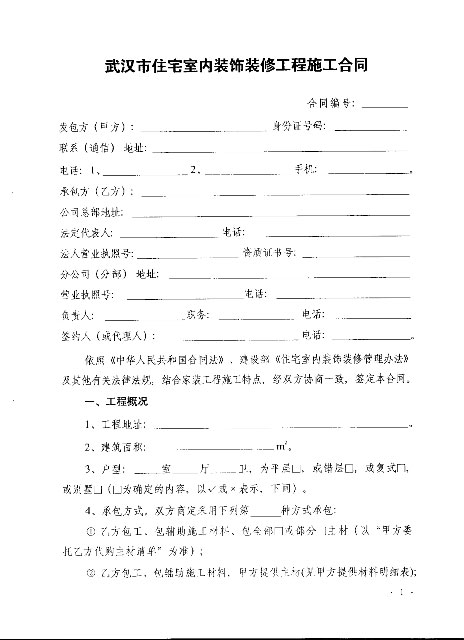 武汉市住宅室内装饰装修工程施工合同
合同编号：
发包方（甲方）：  身份证号码：
联系（通信） 地址：
电话：1、 2、 手机： 。
承包方（乙方）：
公司总部地址：
法定代表人： 电话：
法人营业执照号： 资质证书号：
分公司（分部） 地址：
营业执照号： 电话：
负责人： 职务： 电话：
签约人（或代理人）： 电话：
依照《中华人民共和国合同法》、建设部《住宅室内装饰装修管理办法》
及其他有关法律法规，结合家装工程施工特点，经双方协商一致，签定本合同。
一、工程概况
1、工程地址： 。
2、建筑面积： m²。
3、户型： 室 厅 卫，为平层□、或错层□，或复式□，
或别墅□（□为确定的内容，以✓或×表示，下同）。
4、承包方式，双方商定采用下列第 种方式承包：
① 乙方包工、包辅助施工材料、包全部□或部分□主材（以“甲方委
托乙方代购主材清单”为准）；
② 乙方包工、包辅助施工材料，甲方提供主材(见甲方提供材料明细表);
· 1 ·